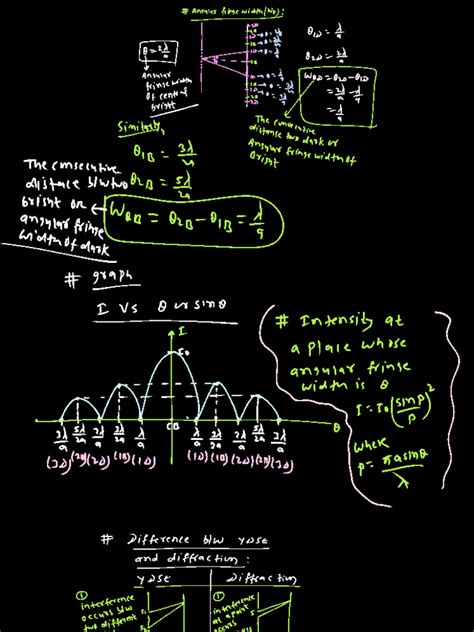 # Angular fringe width (Wθ):
θ = 2λ/a
Angular
fringe width
of central
bright
θ1D = λ/a
θ2D = 2λ/a
WθD = θ2D - θ1D
= 2λ/a - λ/a
= λ/a
The consecutive
distance two dark or
Angular fringe width of
Bright
Similarly,
θ1B = 3λ/2a
θ2B = 5λ/2a
WθB = θ2B - θ1B = λ/a
The consecutive
distance b/w two
bright or
angular fringe
width of dark
# graph
I Vs θ or sinθ
I
I0
CB
θ
3λ/a 5λ/2a 2λ/a 3λ/2a λ/a λ/a 3λ/2a 2λ/a 5λ/2a 3λ/a
(3D) (2B) (2D) (1B) (1D) (1D) (1B) (2D) (2B) (3D)
# Intensity at
a place whose
angular fringe
width is θ
I = I0 (sinβ/β)²
where
β = πasinθ/λ
# Difference b/w YDSE
and diffraction
YDSE Diffraction
① interference
occurs b/w
two different
① interference
at a point
occurs